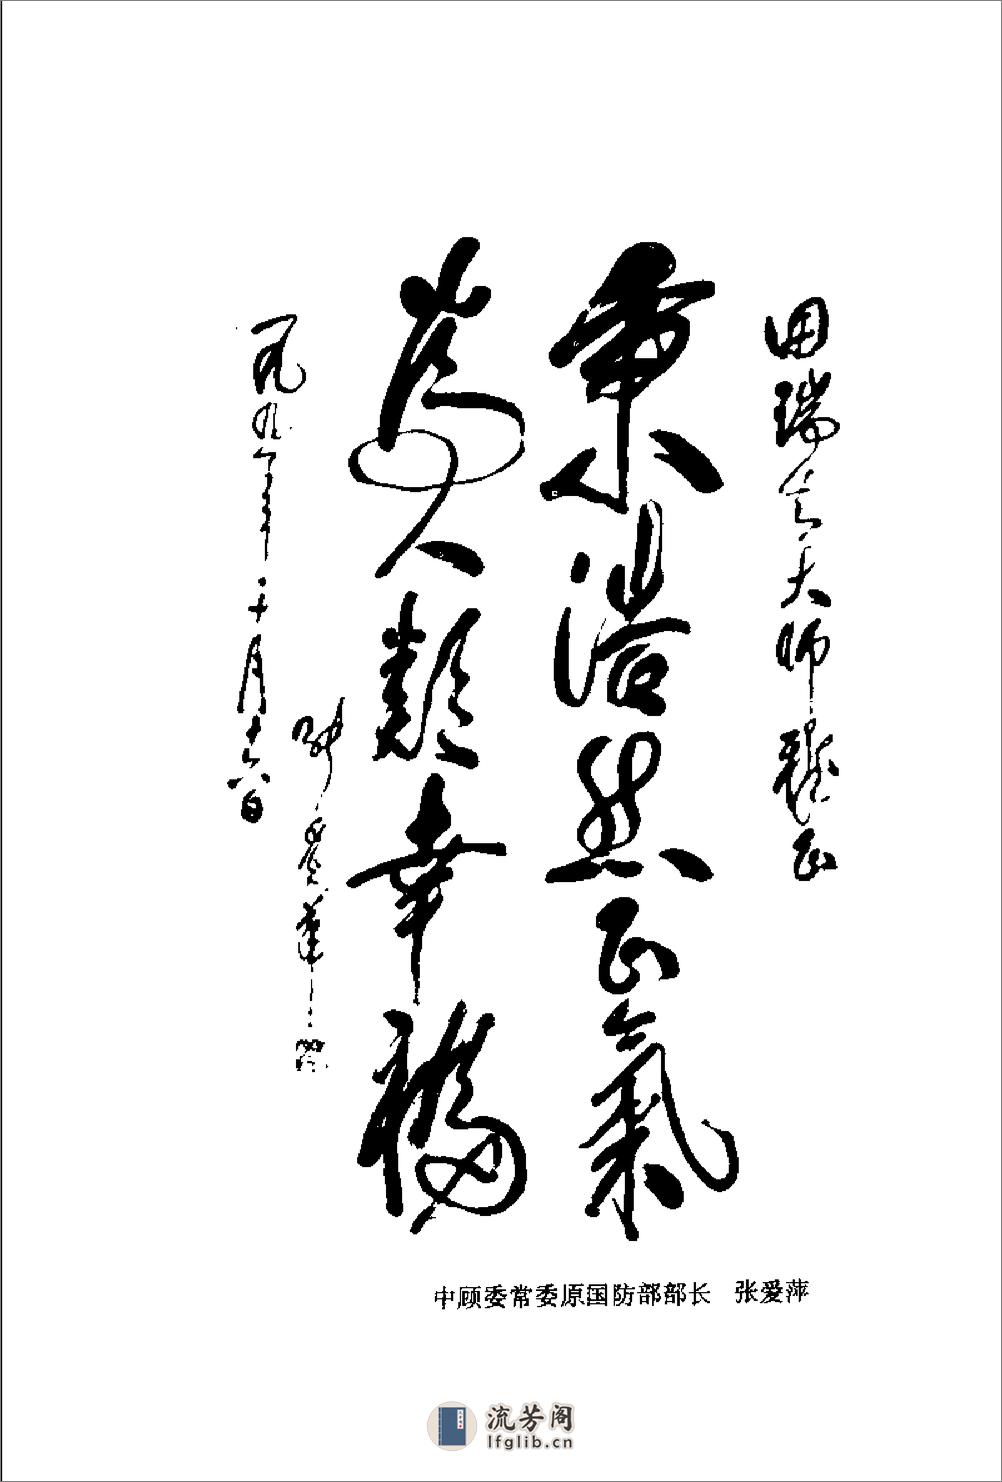 田瑞生大师正
秉浩然正氣
為人類幸福
张爱萍
一九九年十月十六日
中顾委常委原国防部部长 张爱萍
流芳阁
lfglib.cn